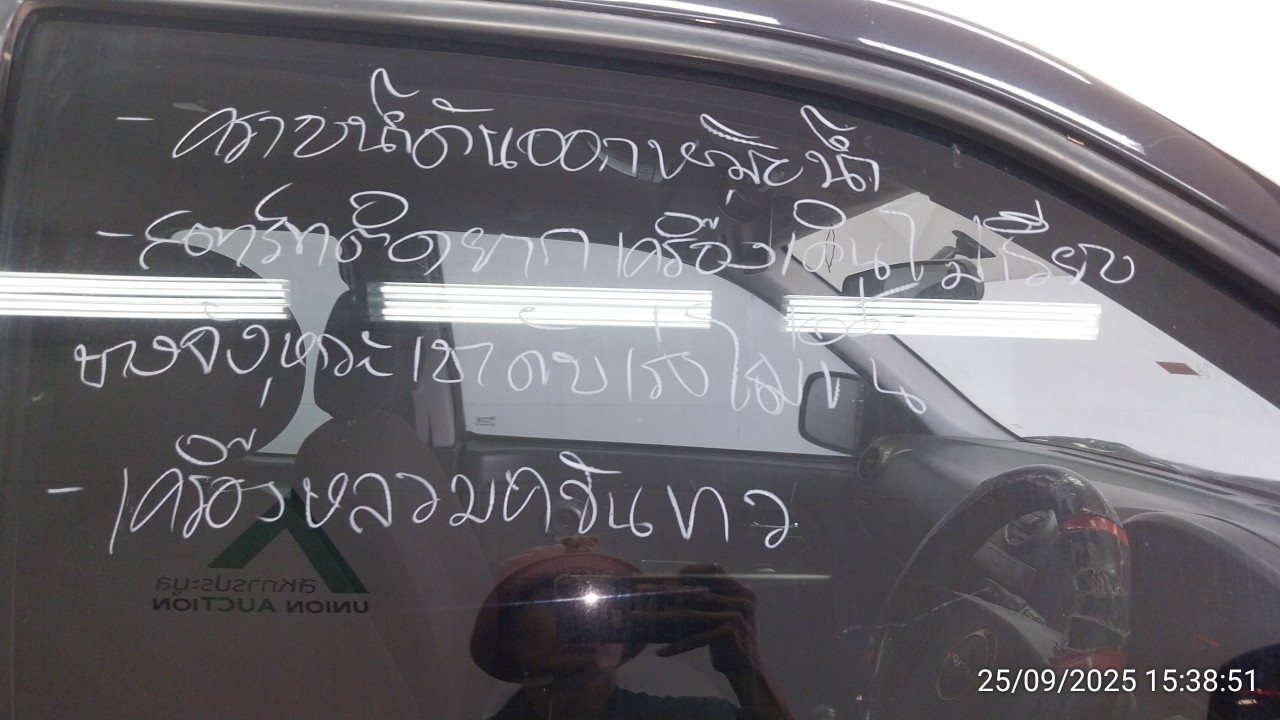 - คราบน้ำดันออกหม้อน้ำ
- สตาร์ทติดยาก เครื่องเดินไม่เรียบ
บางจังหวะเบาดับเร่งไม่ขึ้น
- เครื่องหลวมควันขาว
สหการประมูล
UNION AUCTION
25/09/2025 15:38:51